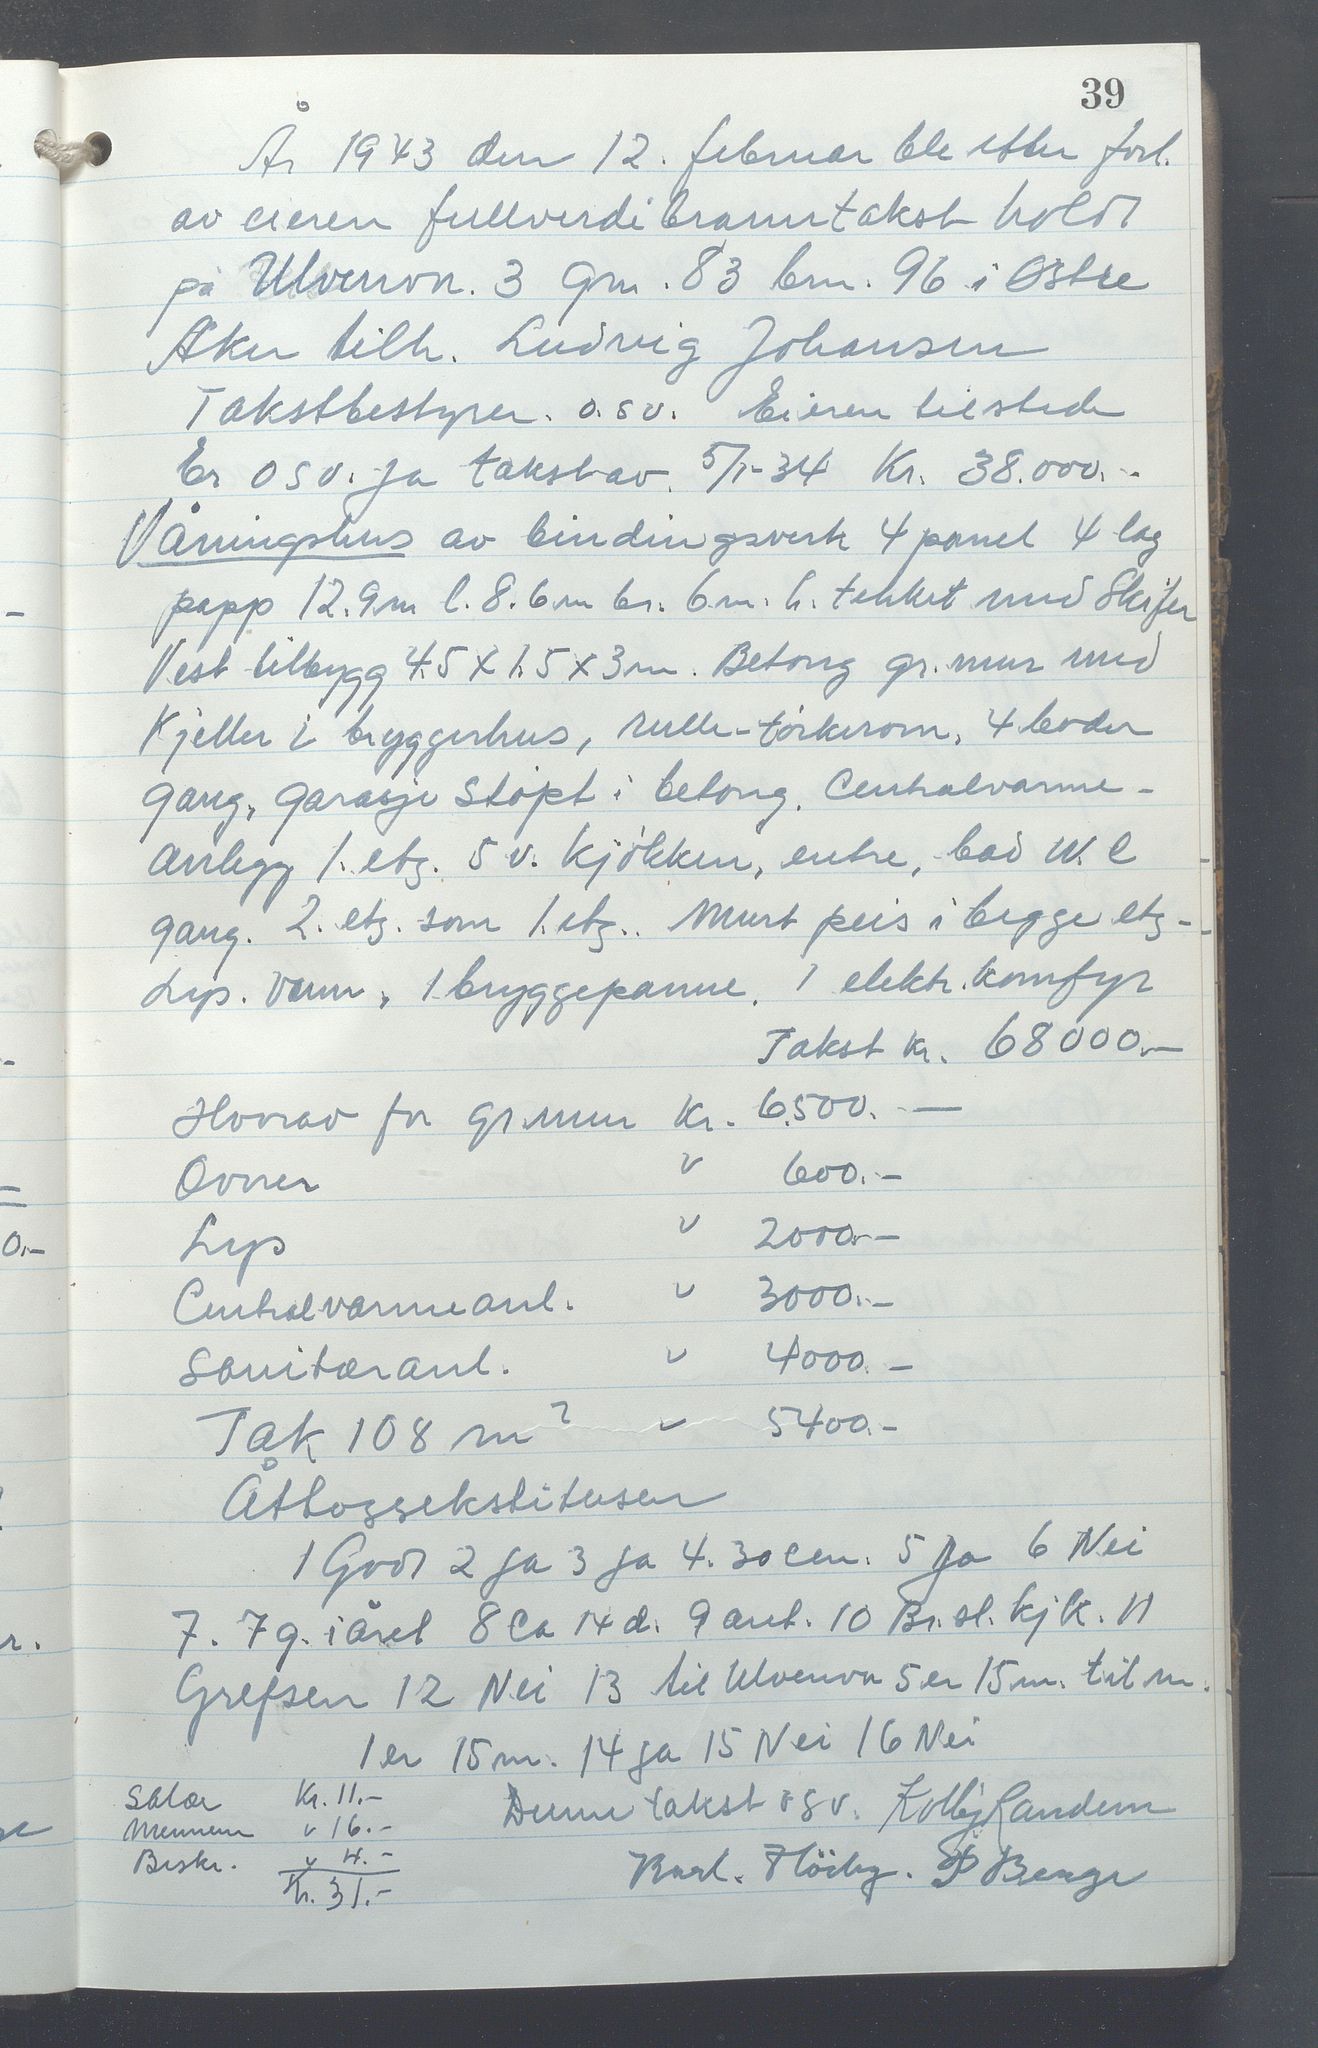 39
År 1943 den 12. februar ble etter forl.
av eieren fullverdibranntakst holdt
på Ulvenvn. 3 gnr. 83 bnr. 96 i Østre
Aker tilh. Ludvig Johansen
Takstbestyrer. o.s.v. Eieren tilstede
Er o s v. ja takst av 5/1-34 Kr. 38.000.-
Våningshus av bindingsverk 4 panel 4 lag
papp 12.9m l. 8.6m br. 6m. h. tekket med Skifer
Vest tilbygg 4.5 x 1.5 x 3m. Betong gr.mur med
Kjeller i bryggerhus, rulle-törkerom, 4 boder
gang, garasje Støpt i betong. Centralvarme-
anlegg 1. etg. 5 v. kjökken, entre, bad W.C
gang. 2. etg. som 1. etg. Murt peis i begge etg-
Lys. vann, 1 bryggepanne, 1 elektr. komfyr
Takst kr. 68000.-
Hvorav for gr.mur Kr. 6.500.-
Ovner " 600.-
Lys " 2000.-
Centralvarmeanl. " 3000.-
Sanitæranl. " 4000.-
Tak 108 m² " 5400.-
1 Godt 2 ja 3 ja 4. 30 cen. 5 ja 6 Nei
7. 7 g. i året 8 Ca 14 d. 9 aret. 10 Br.st. kjk. 11
Grefsen 12 Nei 13 til Ulvenvn 5 er 15m. til nr.
1 er 15 m. 14 ja 15 Nei 16 Nei
Salær Kr. 11.-
Mennene " 16.-
Beskr. " 4.-
Kr. 31.-
Denne takst o s v. Kolbj Randem
Karl. Höiby. P Berge